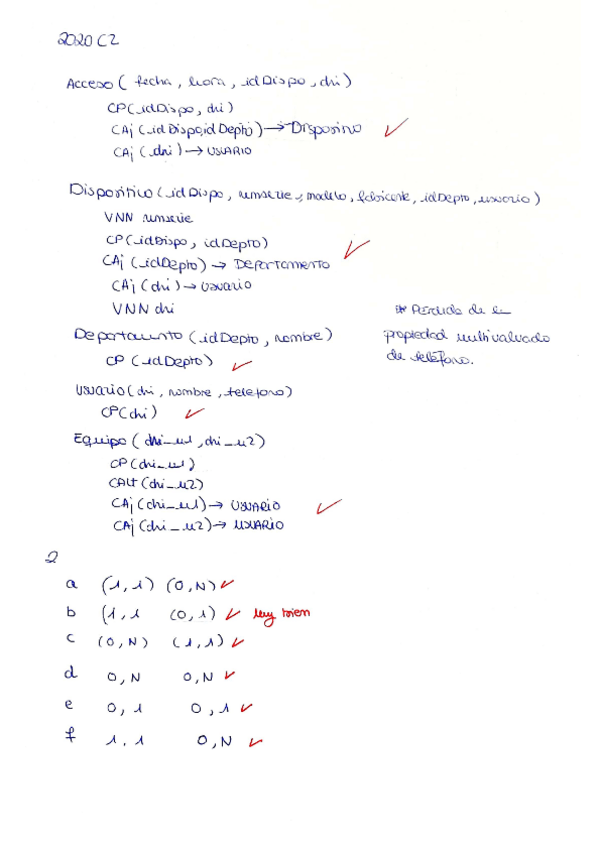 2020 C2
Acceso ( fecha, hora, idDispo, dni )
CP (idDispo, dni)
CAj (idDispo, idDepto) → Dispositivo
CAj (dni) → USUARIO
Dispositivo (idDispo, numserie, modelo, fabricante, idDepto, usuario)
VNN numserie
CP (idDispo, idDepto)
CAj (idDepto) → Departamento
CAj (dni) → Usuario
VNN dni
* Perdida de la
Departamento (idDepto, nombre)
propiedad multivaluado
de teléfono.
CP (idDepto)
Usuario (dni, nombre, telefono)
CP (dni)
Equipo ( dni_u1, dni_u2)
CP (dni_u1)
CAlt (dni_u2)
CAj (dni_u1) → USUARIO
CAj (dni_u2) → USUARIO
2
a (1,1) (0,N)
b (1,1 (0,1) muy bien
c (0,N) (1,1)
d 0,N 0,N
e 0,1 0,1
f 1,1 0,N